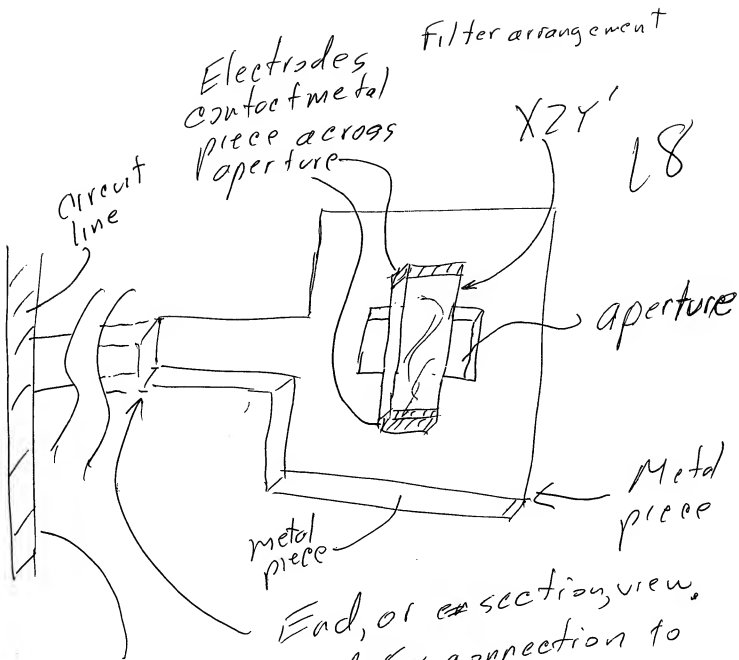 Filter arrangement
Electrodes
contact metal
piece across
aperture
X2Y'
L8
circuit
line
aperture
Metal
piece
metal
piece
End, or section, view.
connection to